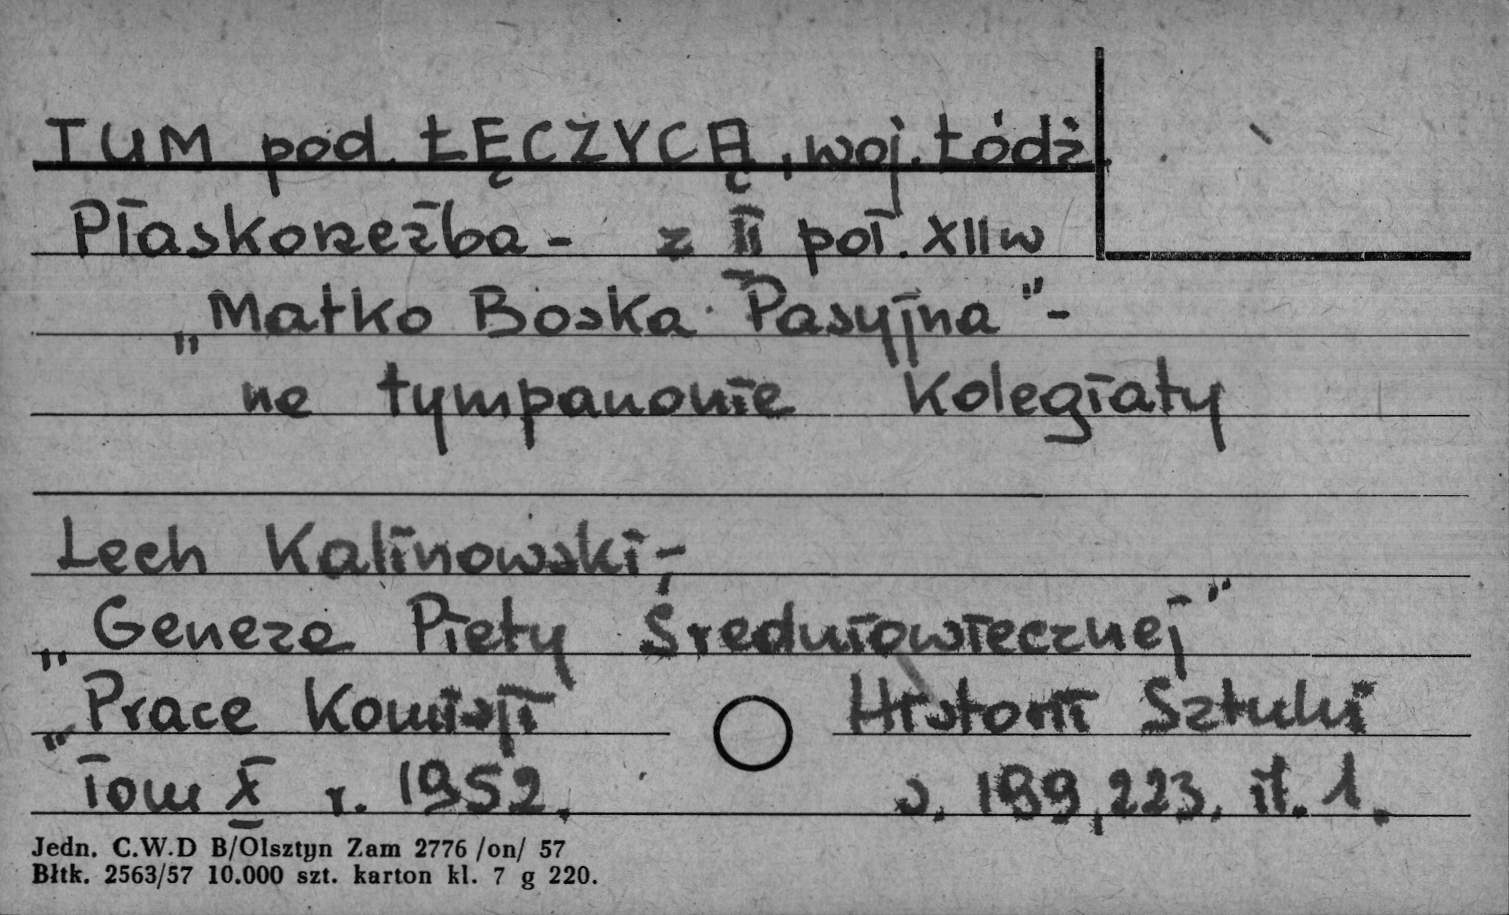 TUM pod ŁĘCZYCĄ, woj. Łódź
Płaskorzeźba - z II poł. XII w
„Matko Boska Pasyjna" -
na tympanonie Kolegiaty
Lech Kalinowski,-
„Geneza Piety Średniowiecznej"
„Prace Komisji Historii Sztuki
Tom X r. 1952. s. 199, 223, il. 1.
Jedn. C.W.D B/Olsztyn Zam 2776 /on/ 57
Błtk. 2563/57 10.000 szt. karton kl. 7 g 220.